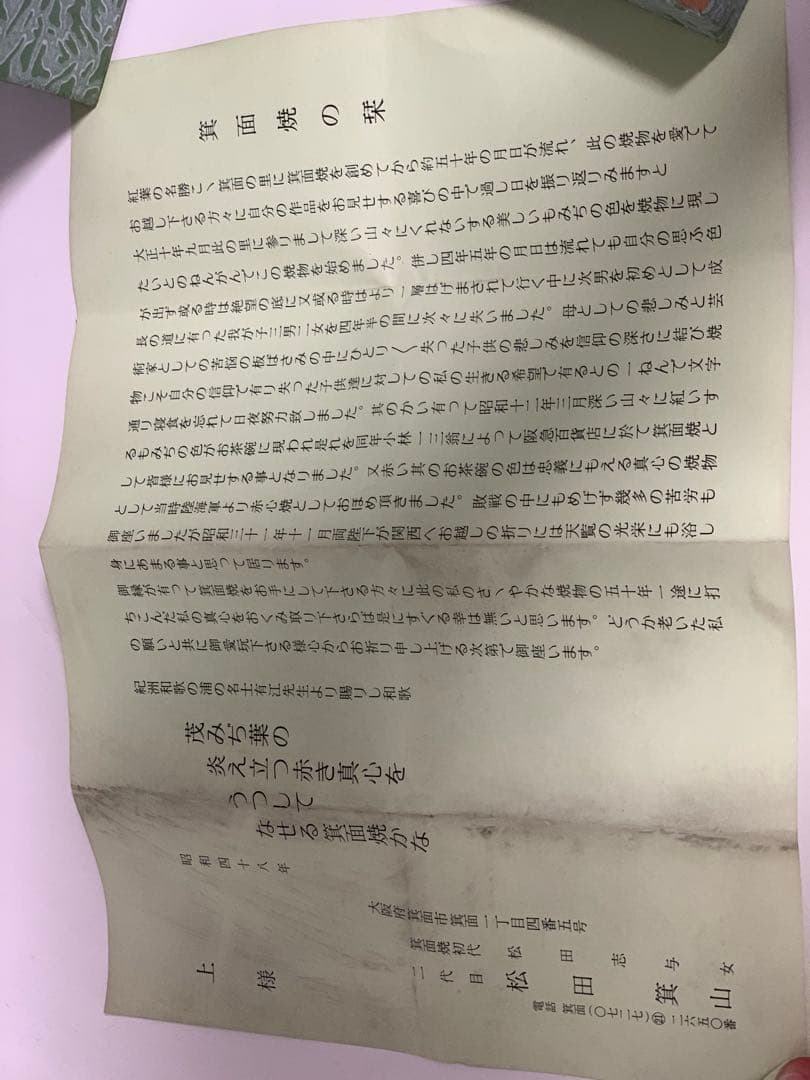 箕面焼の栞
紅葉の名勝こゝ箕面の里に箕面焼を創めてから約五十年の月日が流れ、此の焼物を愛でて
お越し下さる方々に自分の作品をお見せする喜びの中で過し日を振り返りみますと
大正十年九月此の里に参りまして深い山々にくれないする美しいもみぢの色を焼物に現し
たいとのねんがんでこの焼物を始めました。併し四年五年の月日は流れても自分の思ふ色
が出ず或る時は絶望の底に又或る時はより一層はげまされて行く中に次男を初めとして成
長の道に有った我が子三男二女を四年半の間に次々に失いました。母としての悲しみと芸
術家としての苦悩の板ばさみの中にひとり〳〵失った子供の悲しみを信仰の深さに結び焼
物こそ自分の信仰で有り失った子供達に対しての私の生きる希望で有るとの一ねんで文字
通り寝食を忘れて日夜努力致しました。其のかい有って昭和十二年三月深い山々に紅いす
るもみぢの色がお茶碗に現われ是れを同年小林一三翁によって阪急百貨店に於て箕面焼と
して皆様にお見せする事となりました。又赤い其のお茶碗の色は忠義にもえる真心の焼物
として当時陸海軍より赤心焼としておほめ頂きました。敗戦の中にもめげず幾多の苦労も
御座いましたが昭和三十一年十一月両陛下が関西へお越しの折りには天覧の光栄にも浴し
身にあまる事と思って居ります。
御縁が有って箕面焼をお手にして下さる方々に此の私のさゝやかな焼物の五十年一途に打
ちこんだ私の真心をおくみ取り下さらば是にすぐる幸は無いと思います。どうか老いた私
の願いと共に御愛玩下さる様心からお祈り申し上げる次第で御座います。
紀洲和歌の浦の名士有江先生より賜りし和歌
茂みぢ葉の
炎え立つ赤き真心を
うつして
なせる箕面焼かな
昭和四十八年
大阪府箕面市箕面一丁目四番五号
箕面焼初代 松田志与女
二代目 松田箕山
電話 箕面(〇七二七)㉑二六五〇番
上様